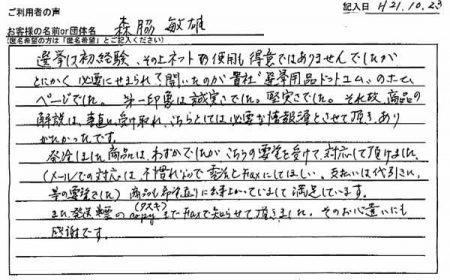 ご利用者の声
記入日 H21.10.23
お客様の名前or団体名 森脇 敏雄
(匿名希望の方は「匿名希望」とご記入ください)
選挙は初経験、その上ネットの使用も得意ではありませんでしたが
とにかく必要にせまられて開いたのが貴社"選挙用品ドットコム"のホーム
ページでした。第一印象は誠実さでした。堅実さでした。それ故、商品の
解説は、素直に受け取れ、こちらとしては必要な情報源とさせて頂き、あり
がたかったです。
発注しました商品は、わずかでしたがこちらの要望を受けて対応して頂けました。
(メールでの対応は、不慣れなので電話とFaxにしてほしい、支払いは代引き、
等の要望でした) 商品も希望通りに出来上がっていまして満足しています。
また、発送の(タスキ)copyまでFaxで知らせて頂きました。そのお心遣いにも
感謝です。